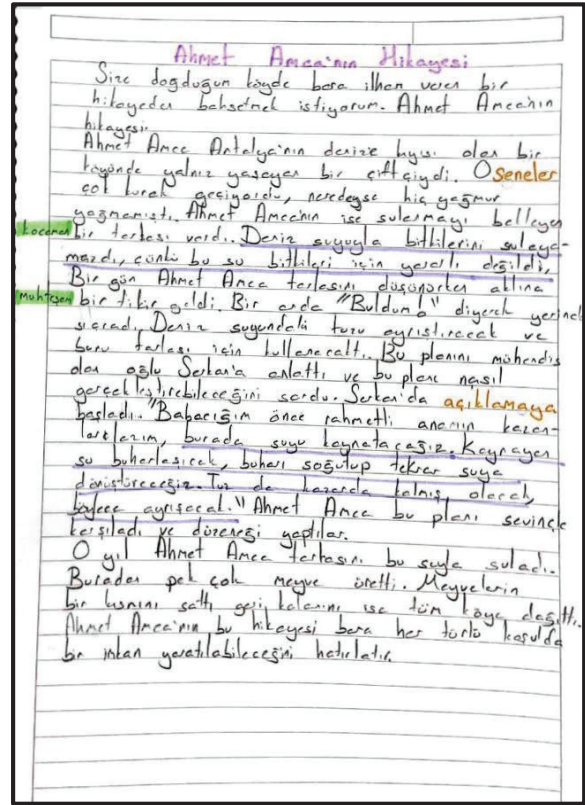 Ahmet Amca'nın Hikayesi
Size doğduğum köyde bana ilham veren bir
hikayeden bahsetmek istiyorum. Ahmet Amca'nın
hikayesi.
Ahmet Amca Antalya'nın denize kıyısı olan bir
köyünde yalnız yaşayan bir çiftçiydi. O seneler
çok kurak geçiyordu, neredeyse hiç yağmur
yağmamıştı. Ahmet Amca'nın ise sulanmayı bekleyen
kocaman bir tarlası vardı. Deniz suyuyla bitkilerini sulaya-
mazdı, çünkü bu su bitkileri için yararlı değildi,
Bir gün Ahmet Amca tarlasını düşünürken aklına
muhteşem bir fikir geldi. Bir anda "Buldum!" diyerek yerinden
sıçradı. Deniz suyundaki tuzu ayrıştıracak ve
bunu tarlası için kullanacaktı. Bu planını mühendis
olan oğlu Serkan'a anlattı ve bu planı nasıl
gerçekleştirebileceğini sordu. Serkan'da açıklamaya
başladı. "Babacığım önce rahmetli anamın kazan-
burada suyu kaynatacağız. Kaynayan
su buharlaşacak, buharı soğutup tekrar suya
dönüştüreceğiz. Tuz da kazanda kalmış olacak,
böylece ayrışacak." Ahmet Amca bu planı sevinçle
karşıladı ve düzeneği yaptılar.
O yıl Ahmet Amca tarlasını bu suyla suladı.
Buradan pek çok meyve üretti. Meyvelerin
bir kısmını sattı geri kalanını ise tüm köye dağıttı.
Ahmet Amca'nın bu hikayesi bana her türlü koşulda
bir imkan yaratılabileceğini hatırlatır.